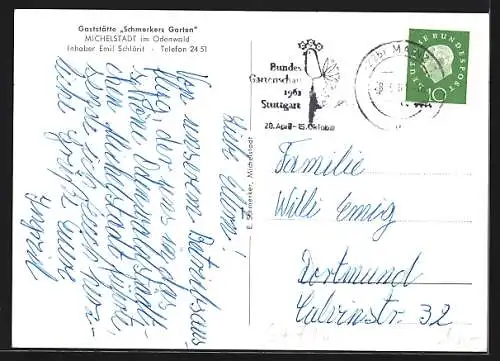 Gaststätte „Schmerkers Garten"
MICHELSTADT im Odenwald
Inhaber Emil Schlörit · Telefon 24 51
Liebe Eltern!
Von unserem Betriebsaus-
flug, der uns in das
schöne Odenwaldstädt-
chen Michelstadt führte,
sende ich Euch herz-
liche Grüße Eure
Ingrid
E. Schmerker, Michelstadt
Bundes
Gartenschau
1961
Stuttgart
28. April - 15. Oktober
DEUTSCHE BUNDESPOST
10
Familie
Willi Emig
Dortmund
Calvinstr. 32